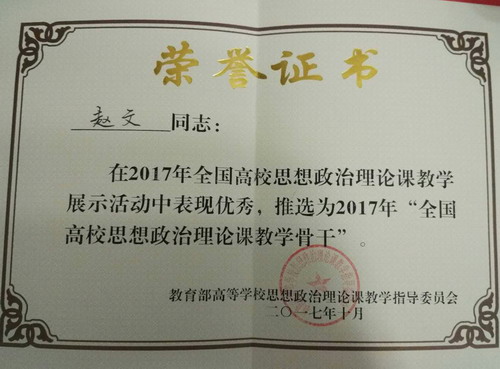 荣誉证书
赵文 同志：
在2017年全国高校思想政治理论课教学
展示活动中表现优秀，推选为2017年“全国
高校思想政治理论课教学骨干”。
教育部高等学校思想政治理论课教学指导委员会
二〇一七年十月